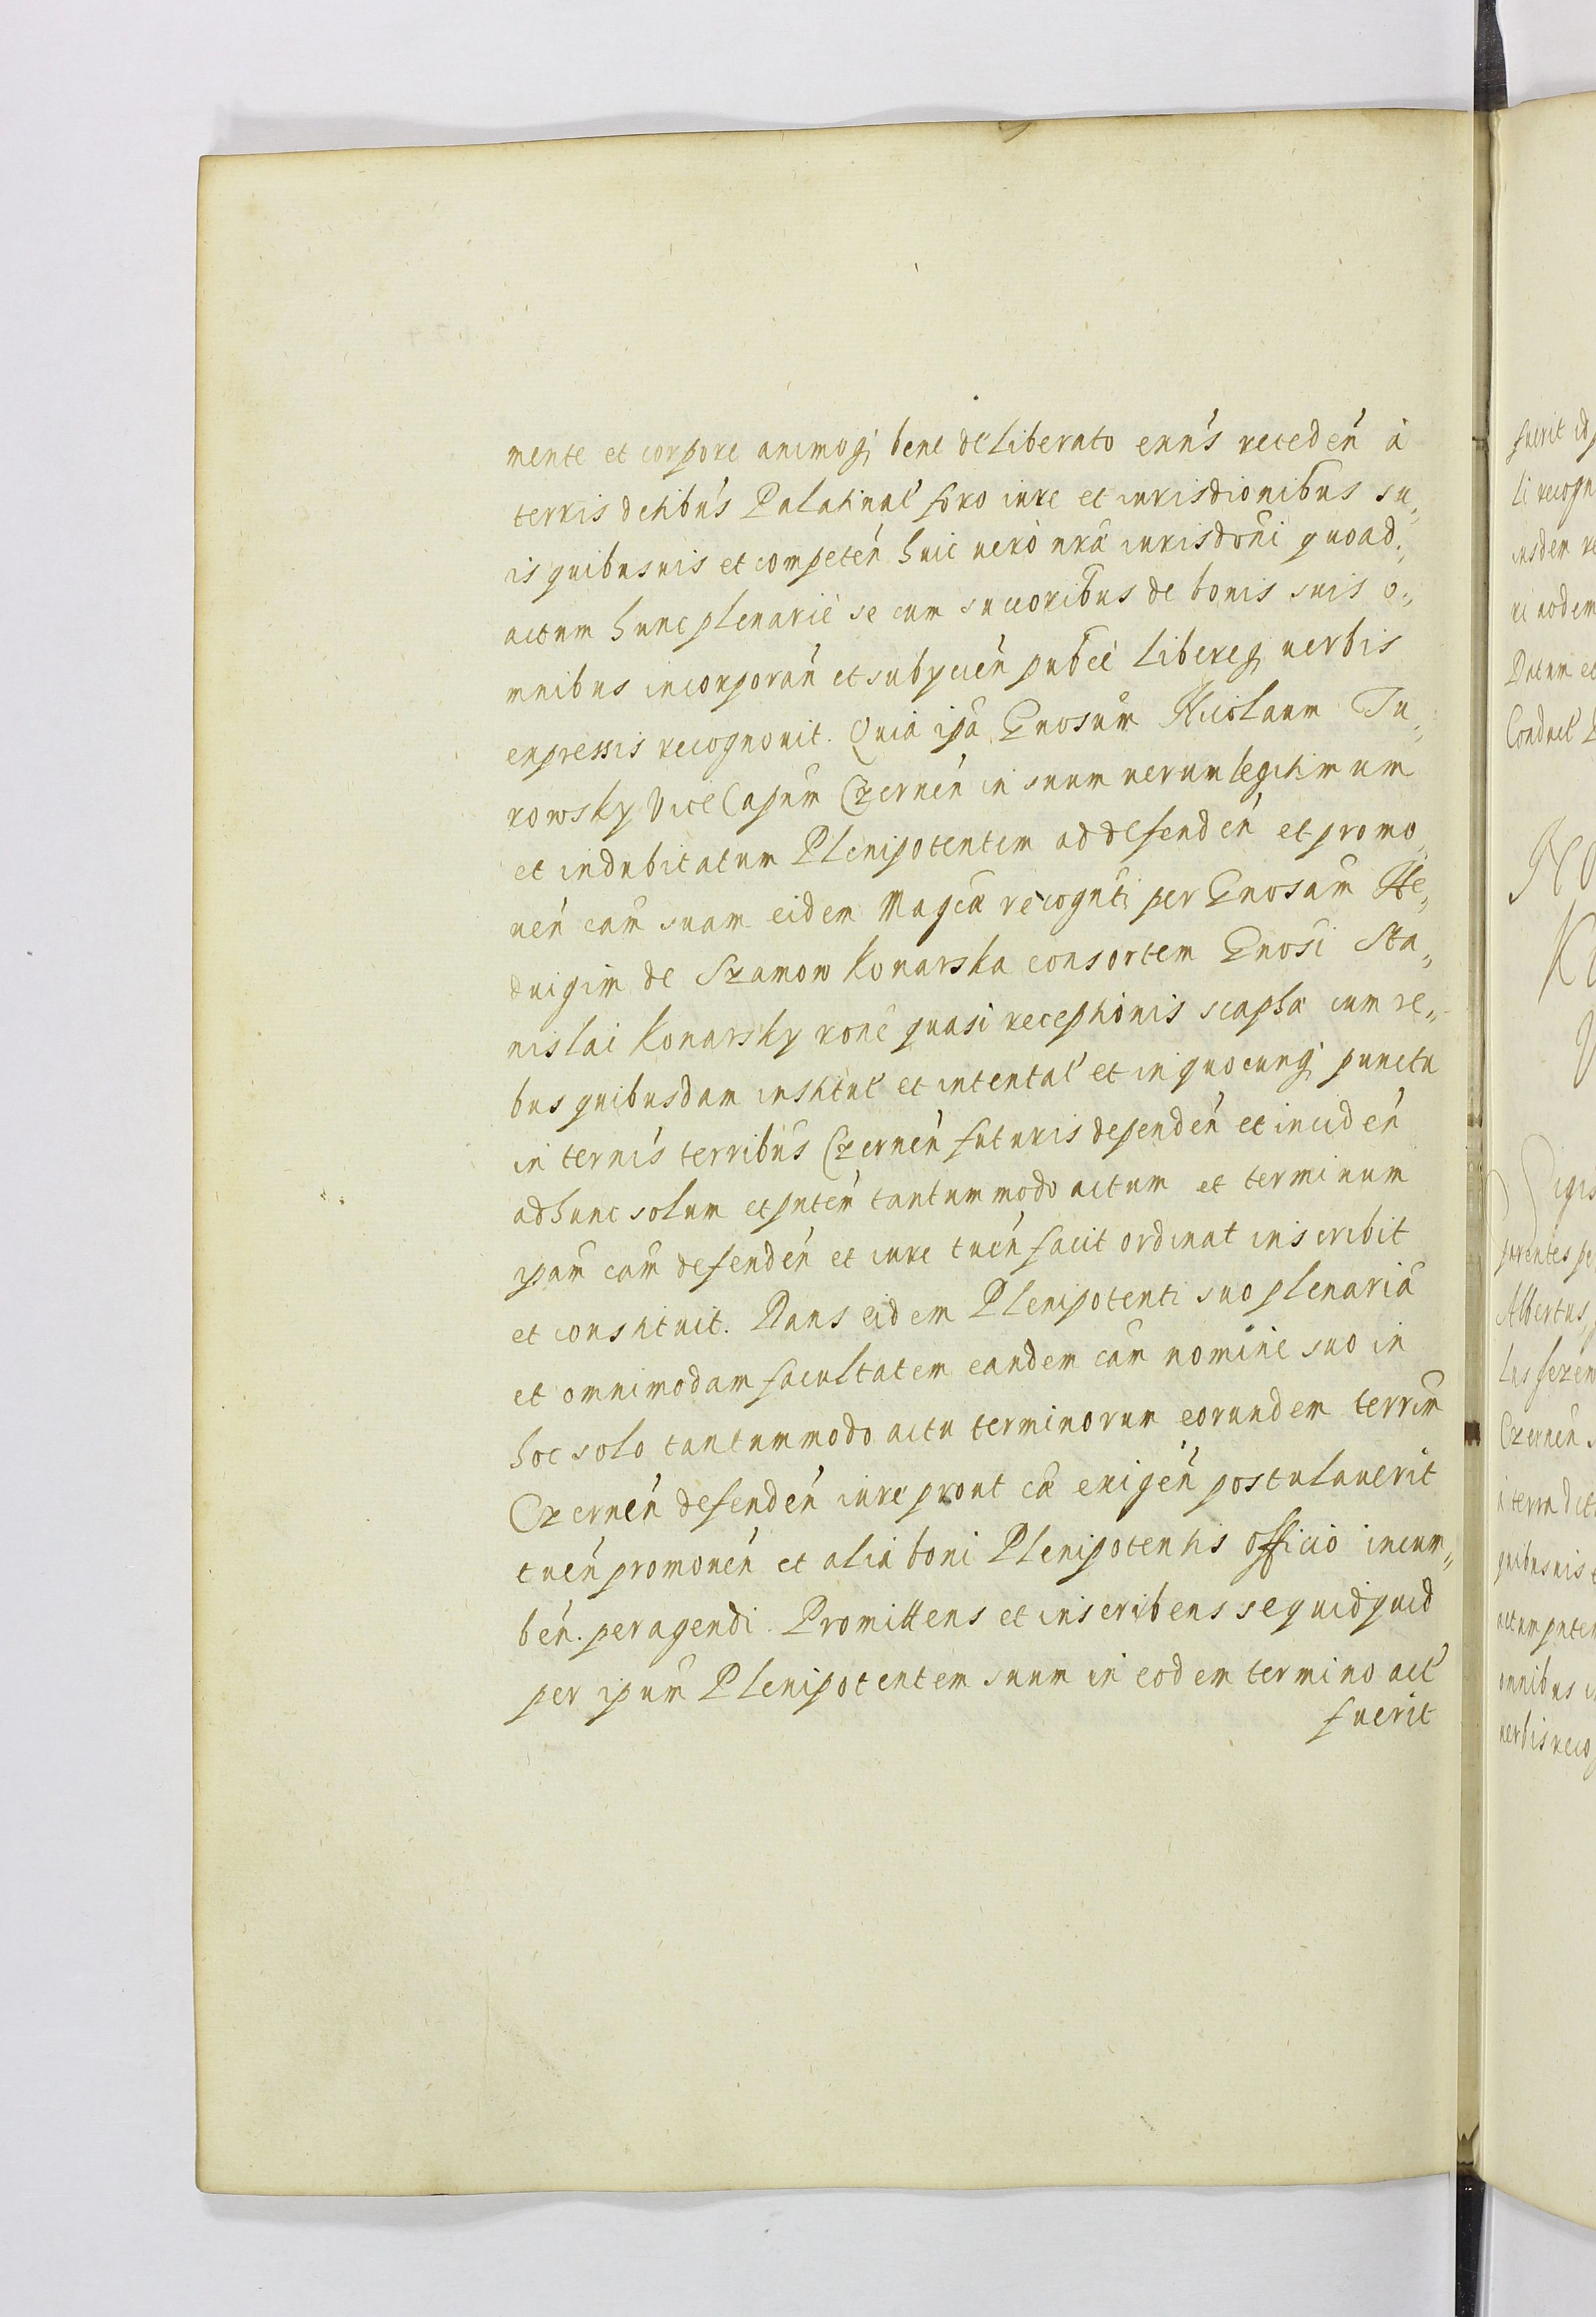 mente et corpore animoq́; bene deliberato exńs receden̄ à
terris dctibús Palatinat́ foro iure et iurisdionibus su„
is quibusuis et competen̄ huic uerò nr̃ã iurisdõni quoad„
actum hunc plenariè se cum succoribus de bonis suis o„
mnibus incorporan̄ et subycien̄ publcè libereq́; uerbis
expressis recognouit. Quia ipa Gnosum̃ Nicolaum Tu„
rowsky ViceCapum̃ Czernen̄ in suum uerum legitimum
et indubitatum Plenipotentem ad defenden̄ et promo„
uen̄ cam̃ suam eidem Magcã recognti per Gnosam̃ He„
duigim de Szamow Konarska consortem Gnosi Sta„
nislai Konarsky rone quasi receptionis scaphæ cum re„
bus quibusdam institut́ et intentat́ et in quocunq́; punctu
in ternís terribús Czernen̄ futuris dependen̄ et inciden̄
ad hunc solum et pntem̃ tantummodo actum et terminum
ipam̃ cam̃ defenden̄ et iure tuen̄ facit ordinat inscribit
et constituit. Dans eidem Plenipotenti suo plenariã
et omnimodam facultatem eandem cam̃ nomine suo in
hoc solo tantummodo actu terminorum eorundem terrũm
Czernen̄ defenden̄ iure prout cã exigen̄ postulauerit
tuen̄ promouen̄ et alia boni Plenipotentis officio incum„
ben̄. peragendi. Promittens et inscribens se quidquid
per ipum̃ Plenipotentem suum in eodem termino act́
fuerit
fuerit id
li recogn
iusdem re
Datum et
Conduct́
Sigis
parentes pe
Albertus,
Czernen̄
à terra dct
quibusuis
actum pnten
omnibus
uerbis reco